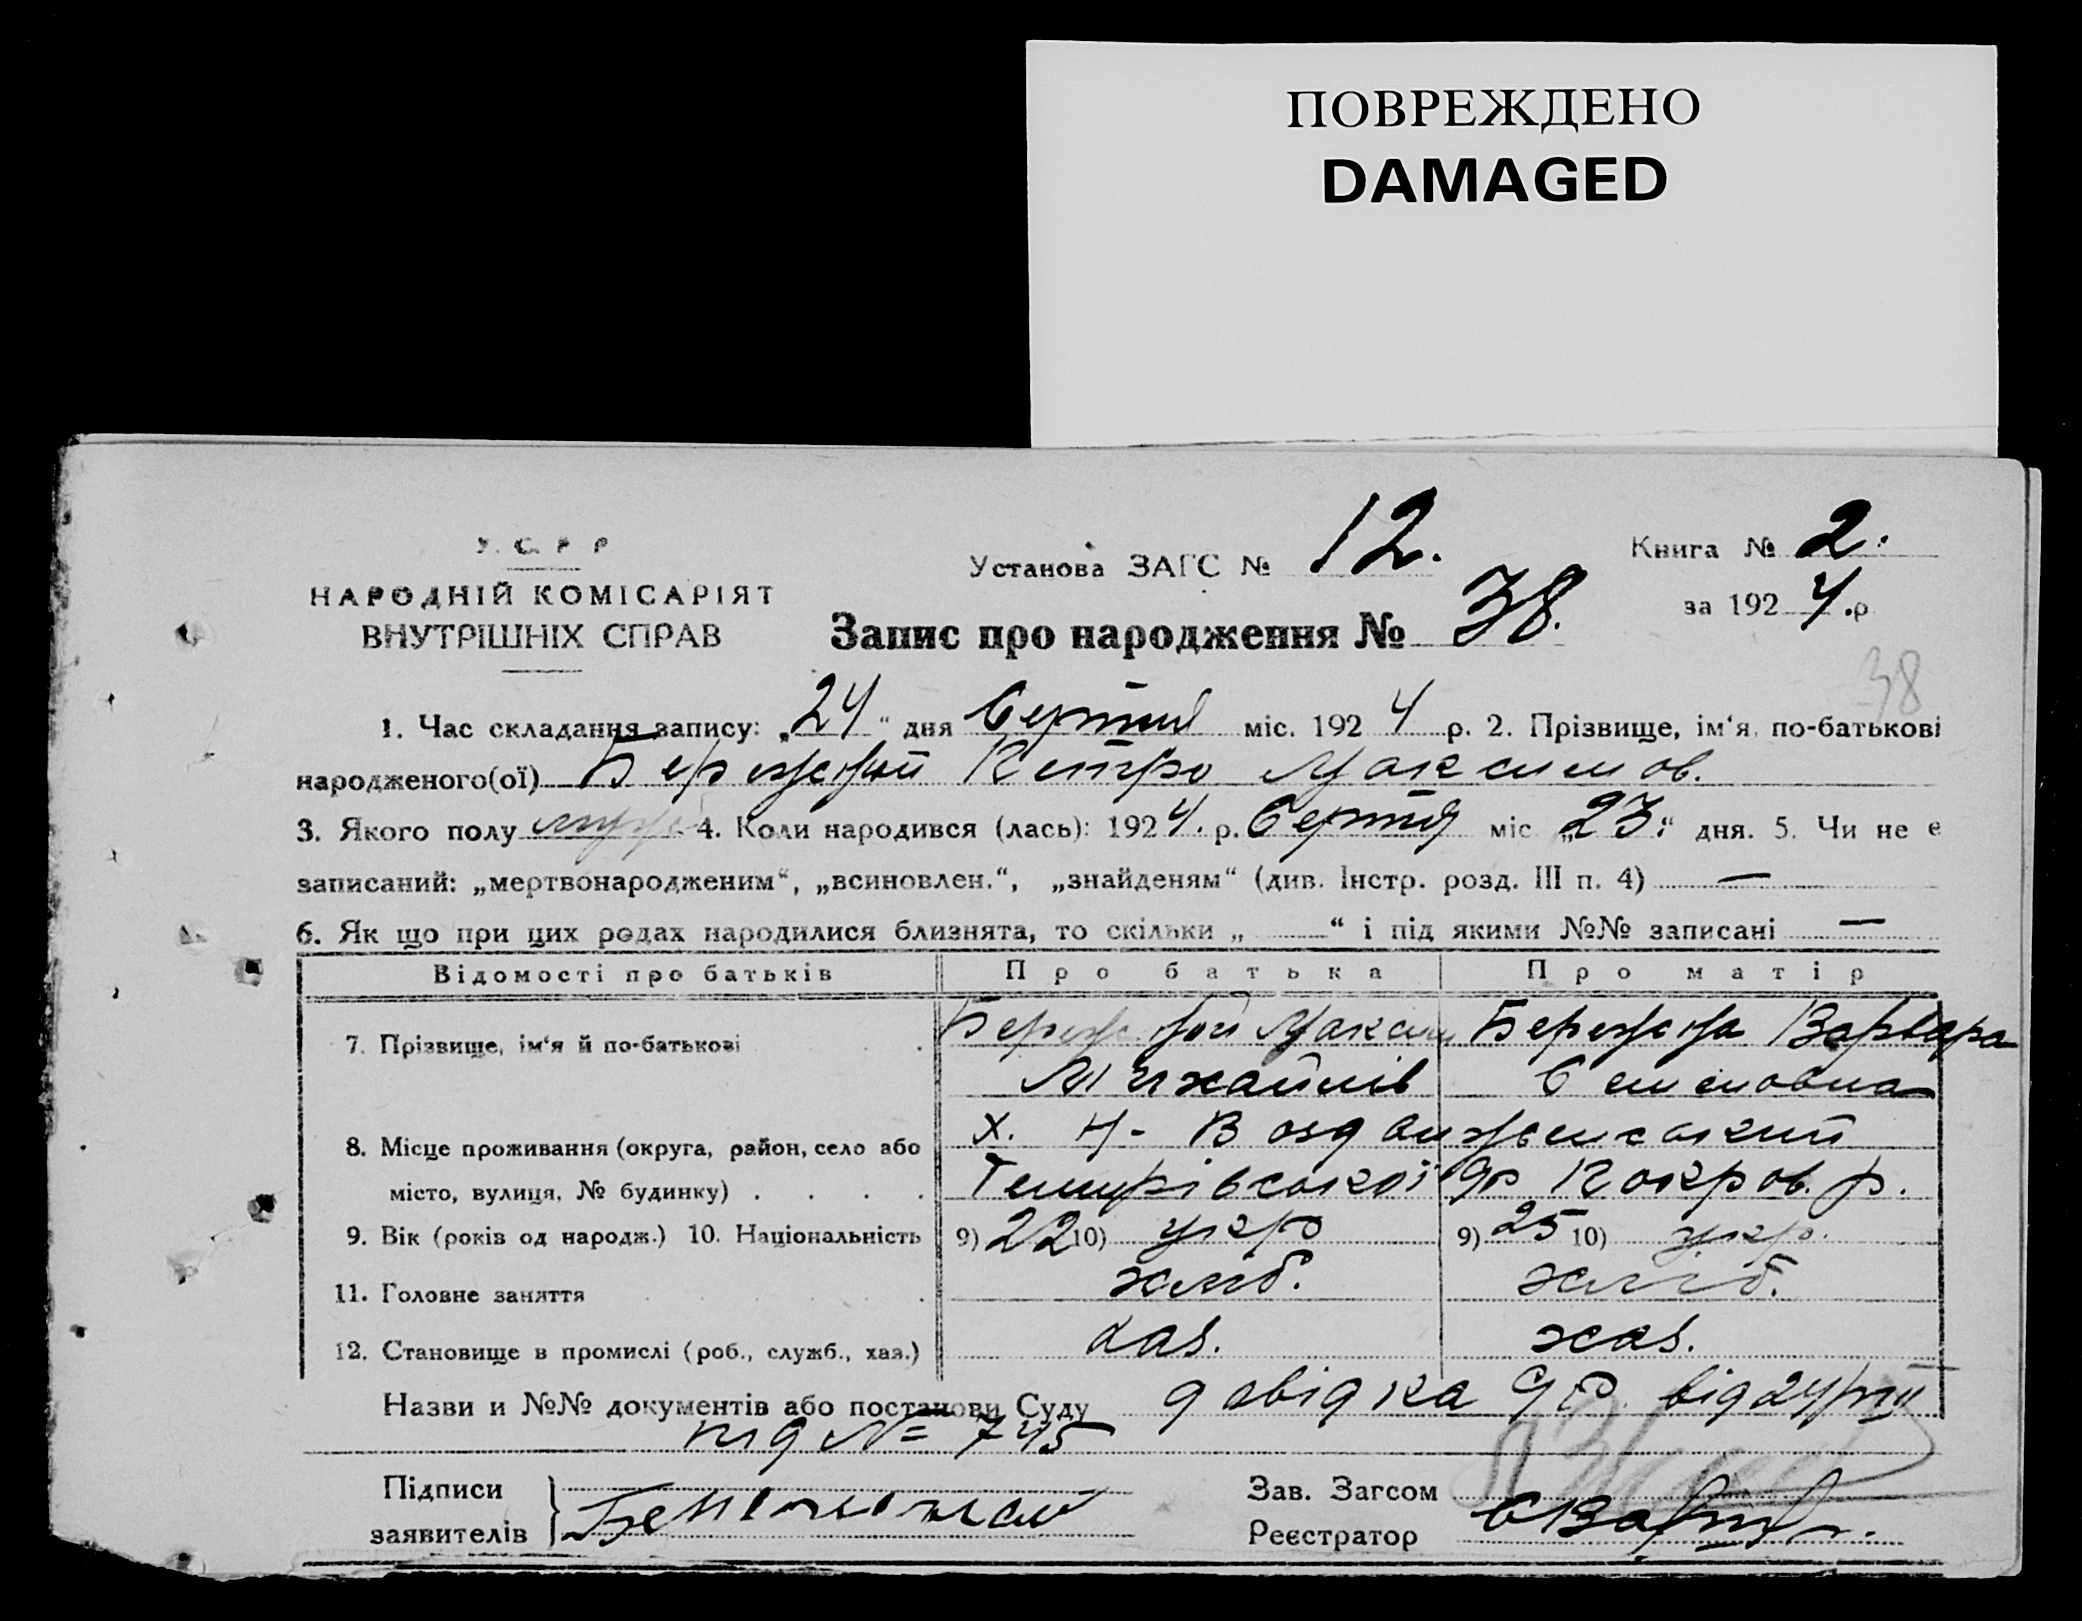 ПОВРЕЖДЕНО
DAMAGED
У. С. Р. Р.
НАРОДНІЙ КОМІСАРІЯТ
ВНУТРІШНІХ СПРАВ
Установа ЗАГС № 12.
Книга № 2.
за 1924.р
Запис про народження № 38.
38
1. Час складання запису: „24“ дня Серпня міс. 1924 р. 2. Прізвище, ім‘я, по-батькові
народженого(ої) Бережной Петро Максимов.
3. Якого полу муж 4. Коли народився (лась): 1924. р. Серпня міс „23.“ дня. 5. Чи не є
записаний: „мертвонародженим“, „всиновлен.“, „знайденям“ (див. Інстр. розд. III п. 4) —
6. Як що при цих родах народилися близнята, то скільки „ “ і під якими №№ записані —
Відомості про батьків Про батька Про матір
7. Прізвище, ім‘я й по-батькові Бережной Максим Бережна Варвара
Михайлів Семеновна
8. Місце проживання (округа, район, село або х. Н- Воздвиженський
місто, вулиця, № будинку) . . . . Покров. р.
9. Вік (років од народж.) 10. Національність 9) 22 10) укр 9) 25 10) укр.
11. Головне заняття хліб. хліб.
12. Становище в промислі (роб., служб., хаз.) хаз. хаз.
Назви и №№ документів або постанови Суду довідка від 24/VIII
під № 745
Підписи
заявителів
Зав. Загсом
Реєстратор